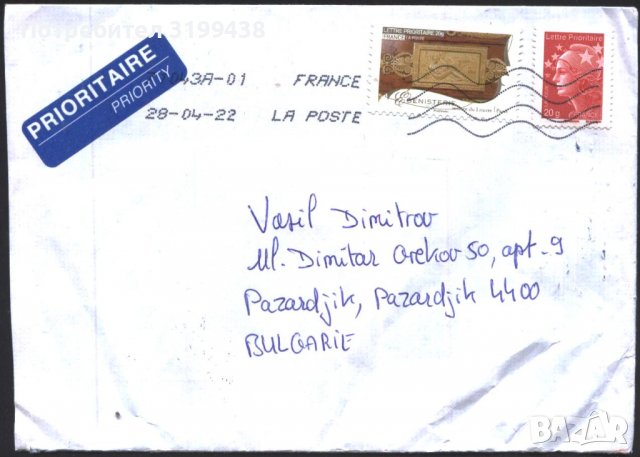 потребител 3199438
PRIORITAIRE
PRIORITY
043A-01 FRANCE
28-04-22 LA POSTE
LETTRE PRIORITAIRE 20g
FRANCE LA POSTE
EBENISTERIE
Lettre Prioritaire
20g FRANCE
Vasil Dimitrov
Ul. Dimitar Grekov 50, apt. 9
Pazardjik, Pazardjik 4400
BULGARIE
BAZAR